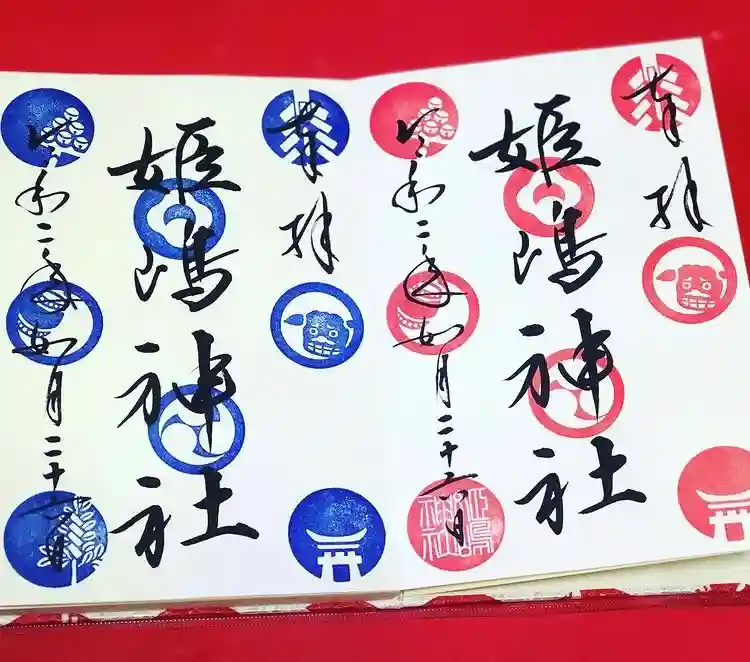 奉拝
姫嶋神社
令和二年如月二十六日
姫嶋神社
奉拝
姫嶋神社
令和二年如月二十六日